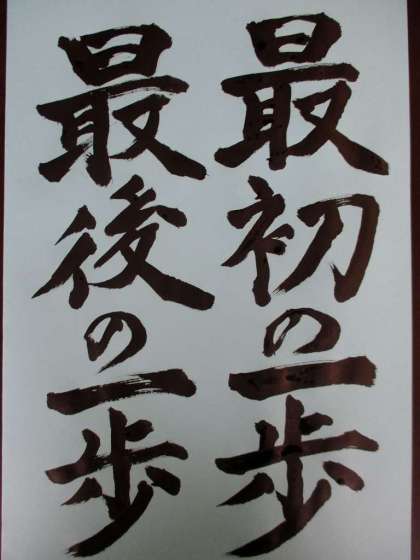 最初の一歩
最後の一歩